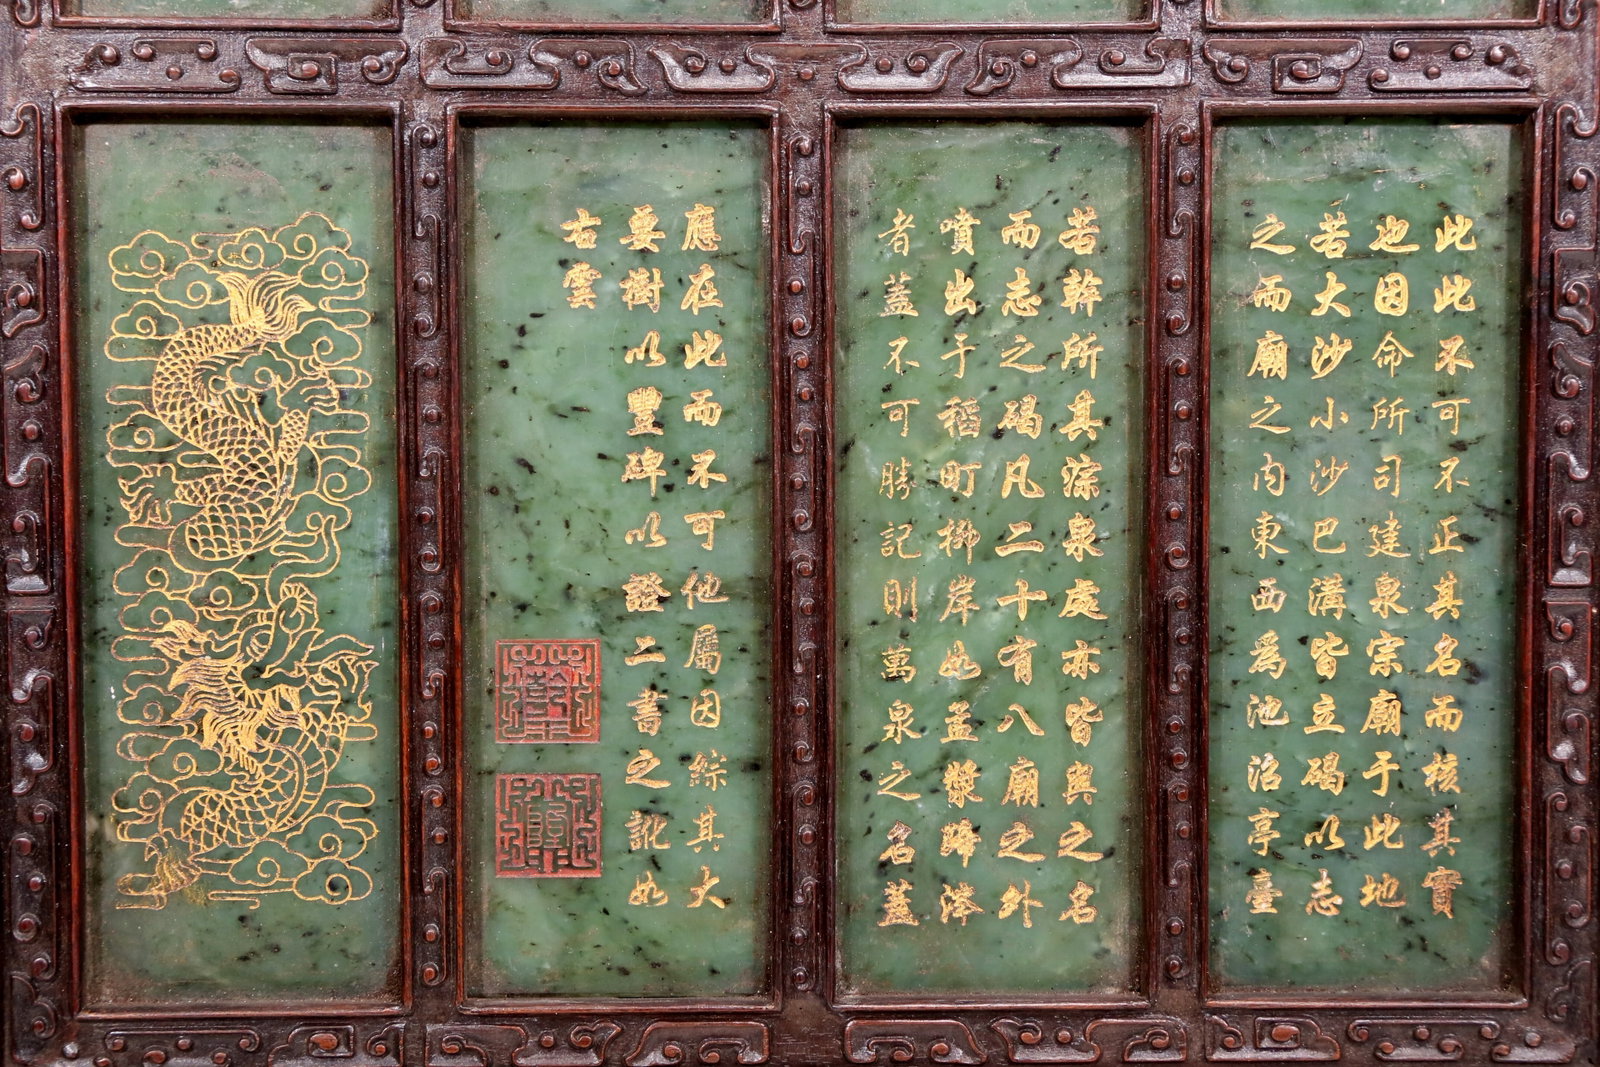 此此不可不正其名而核其實
也因命所司建泉宗廟于此地
若大沙小沙巴溝皆立碣以志
之而廟之内東西為池沼亭臺
若幹所其淙泉處亦皆與之名
而志之碣凡二十有八廟之外
噴出于稻町柳岸如盂漿蹄涔
者蓋不可勝記則萬泉之名蓋
應在此而不可他屬因綜其大
要樹以豐碑以證二書之訛如
右雲